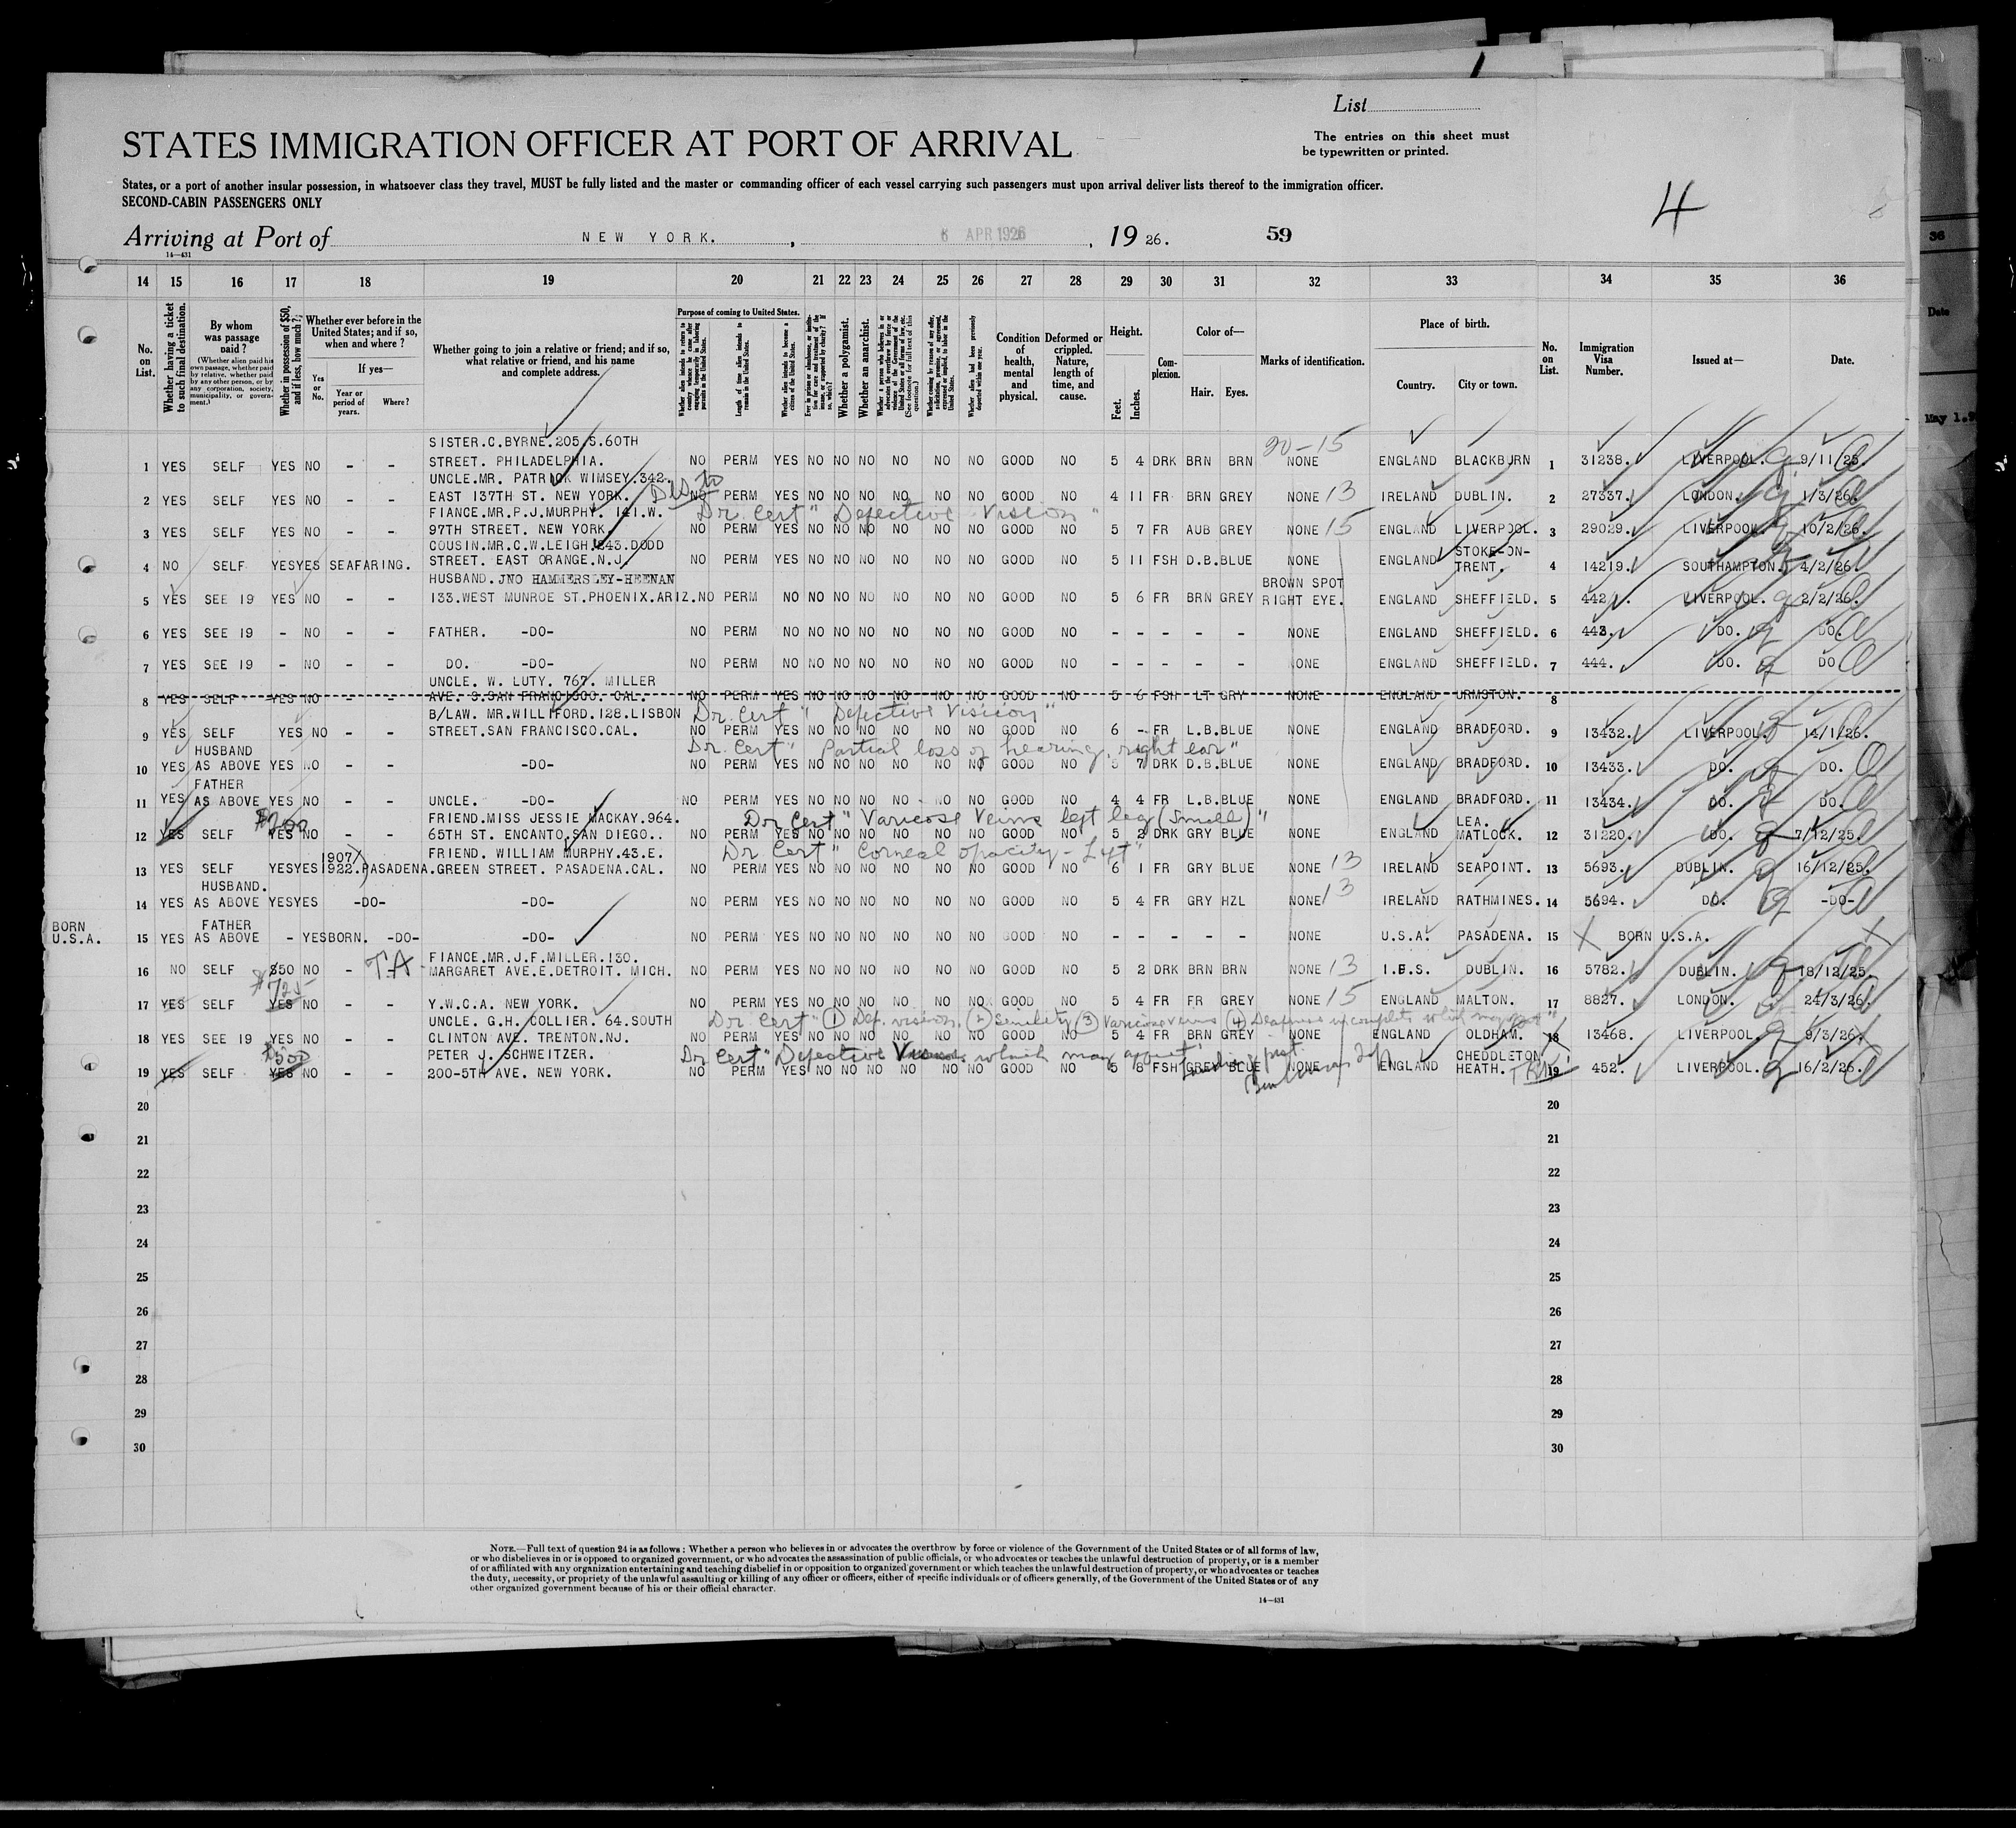 List
STATES IMMIGRATION OFFICER AT PORT OF ARRIVAL
The entries on this sheet must
be typewritten or printed.
States, or a port of another insular possession, in whatsoever class they travel, MUST be fully listed and the master or commanding officer of each vessel carrying such passengers must upon arrival deliver lists thereof to the immigration officer.
SECOND-CABIN PASSENGERS ONLY
4
Arriving at Port of NEW YORK. , 6 APR 1926 , 19 26. 59
14—431
36
14 15 16 17 18 19 20 21 22 23 24 25 26 27 28 29 30 31 32 33 34 35 36
No. on List.
Whether having a ticket to such final destination.
By whom was passage paid?
(Whether alien paid his own passage, whether paid by relative, whether paid by any other person, or by any corporation, society, municipality, or government.)
Whether in possession of $50, and if less, how much?
Whether ever before in the United States; and if so, when and where?
Yes or No.
If yes—
Year or period of years.
Where?
Whether going to join a relative or friend; and if so, what relative or friend, and his name and complete address.
Purpose of coming to United States.
Length of time alien intends to remain in the United States.
Whether alien intends to become a citizen of the United States.
Whether a polygamist.
Whether an anarchist.
Condition of health, mental and physical.
Deformed or crippled. Nature, length of time, and cause.
Height.
Feet. Inches.
Complexion.
Color of—
Hair. Eyes.
Marks of identification.
Place of birth.
Country. City or town.
No. on List.
Immigration Visa Number.
Issued at—
Date.
Date
May 1.
SISTER.C.BYRNE.205.S.60TH 20-15
1 YES SELF YES NO - - STREET. PHILADELPHIA. NO PERM YES NO NO NO NO NO NO GOOD NO 5 4 DRK BRN BRN NONE ENGLAND BLACKBURN 1 31238. LIVERPOOL. 9/11/25.
UNCLE.MR. PATRICK WIMSEY.342.
2 YES SELF YES NO - - EAST 137TH ST. NEW YORK. NO PERM YES NO NO NO NO NO NO GOOD NO 4 11 FR BRN GREY NONE 13 IRELAND DUBLIN. 2 27337. LONDON. 1/3/26.
FIANCE.MR.P.J.MURPHY. 141.W. Dr. Cert "Defective Vision"
3 YES SELF YES NO - - 97TH STREET. NEW YORK. NO PERM YES NO NO NO NO NO NO GOOD NO 5 7 FR AUB GREY NONE 15 ENGLAND LIVERPOOL. 3 29029. LIVERPOOL. 10/2/26.
COUSIN.MR.C.W.LEIGH.243.DODD STOKE-ON-
4 NO SELF YES YES SEAFARING. STREET. EAST ORANGE.N.J. NO PERM YES NO NO NO NO NO NO GOOD NO 5 11 FSH D.B. BLUE ENGLAND TRENT. 4 14219. SOUTHAMPTON. 4/2/26.
HUSBAND. JNO HAMMERSLEY-HEENAN BROWN SPOT
5 YES SEE 19 YES NO - - 133.WEST MUNROE ST.PHOENIX.ARIZ. NO PERM NO NO NO NO NO NO NO GOOD NO 5 6 FR BRN GREY RIGHT EYE. ENGLAND SHEFFIELD. 5 442. LIVERPOOL. 2/2/26.
6 YES SEE 19 - NO - - FATHER. -DO- NO PERM NO NO NO NO NO NO NO GOOD NO - - - - - NONE ENGLAND SHEFFIELD. 6 443. DO. DO.
7 YES SEE 19 - NO - - DO. -DO- NO PERM NO NO NO NO NO NO NO GOOD NO - - - - - NONE ENGLAND SHEFFIELD. 7 444. DO. DO
UNCLE. W. LUTY. 767. MILLER
8 YES SELF YES NO - - AVE. S.SAN FRANCISCO. CAL. NO PERM YES NO NO NO NO NO NO GOOD NO 5 6 FSH LT GRY NONE ENGLAND URMSTON. 8
B/LAW. MR.WILLIFORD.128.LISBON Dr. Cert "Defective Vision"
9 YES SELF YES NO - - STREET.SAN FRANCISCO.CAL. NO PERM YES NO NO NO NO NO NO GOOD NO 6 - FR L.B. BLUE NONE ENGLAND BRADFORD. 9 13432. LIVERPOOL. 14/1/26.
HUSBAND Dr. Cert "Partial loss of hearing, right ear"
10 YES AS ABOVE YES NO - - -DO- NO PERM YES NO NO NO NO NO NO GOOD NO 5 7 DRK D.B. BLUE NONE ENGLAND BRADFORD. 10 13433. DO. DO.
FATHER
11 YES AS ABOVE YES NO - - UNCLE. -DO- NO PERM YES NO NO NO NO NO NO GOOD NO 4 4 FR L.B. BLUE NONE ENGLAND BRADFORD. 11 13434. DO. DO.
$200 FRIEND.MISS JESSIE MACKAY.964. Dr Cert "Varicose Veins left leg (Small)" LEA.
12 YES SELF YES NO - - 65TH ST. ENCANTO.SAN DIEGO.. NO PERM YES NO NO NO NO NO NO GOOD NO 5 2 DRK GRY BLUE NONE ENGLAND MATLOCK. 12 31220. DO. 7/12/25.
1907/ FRIEND. WILLIAM MURPHY.43.E. Dr Cert "Corneal opacity - Left"
13 YES SELF YES YES 1922. PASADENA. GREEN STREET. PASADENA.CAL. NO PERM YES NO NO NO NO NO NO GOOD NO 6 1 FR GRY BLUE NONE 13 IRELAND SEAPOINT. 13 5693. DUBLIN. 16/12/25.
HUSBAND.
14 YES AS ABOVE YES YES -DO- -DO- NO PERM YES NO NO NO NO NO NO GOOD NO 5 4 FR GRY HZL NONE 13 IRELAND RATHMINES. 14 5694. DO. -DO-
BORN FATHER
U.S.A. 15 YES AS ABOVE - YES BORN. -DO- -DO- NO PERM YES NO NO NO NO NO NO GOOD NO - - - - - NONE U.S.A. PASADENA. 15 BORN U.S.A.
FIANCE.MR.J.F.MILLER.130.
16 NO SELF $50 NO - T.A. MARGARET AVE.E.DETROIT. MICH. NO PERM YES NO NO NO NO NO NO GOOD NO 5 2 DRK BRN BRN NONE 13 I.F.S. DUBLIN. 16 5782. DUBLIN. 18/12/25.
$725
17 YES SELF YES NO - - Y.W.C.A. NEW YORK. NO PERM YES NO NO NO NO NO NO GOOD NO 5 4 FR FR GREY NONE 15 ENGLAND MALTON. 17 8827. LONDON. 24/3/26.
UNCLE. G.H. COLLIER. 64.SOUTH Dr. Cert "(1) Def. vision. (2) Senility (3) Varicose veins (4) Deafness incomplete which may
18 YES SEE 19 YES NO - - CLINTON AVE. TRENTON.NJ. NO PERM YES NO NO NO NO NO NO GOOD NO 5 4 FR BRN GREY NONE ENGLAND OLDHAM. 18 13468. LIVERPOOL. 9/3/26.
$500 PETER J. SCHWEITZER. Dr Cert "Defective Vision which may affect CHEDDLETON
19 YES SELF YES NO - - 200-5TH AVE. NEW YORK. NO PERM YES NO NO NO NO NO NO GOOD NO 5 8 FSH GREY BLUE NONE ENGLAND HEATH. 19 452. LIVERPOOL. 16/2/26.
20 20
21 21
22 22
23 23
24 24
25 25
26 26
27 27
28 28
29 29
30 30
NOTE.—Full text of question 24 is as follows: Whether a person who believes in or advocates the overthrow by force or violence of the Government of the United States or of all forms of law,
or who disbelieves in or is opposed to organized government, or who advocates the assassination of public officials, or who advocates or teaches the unlawful destruction of property, or is a member
of or affiliated with any organization entertaining and teaching disbelief in or opposition to organized government or which teaches the unlawful destruction of property, or who advocates or teaches
the duty, necessity, or propriety of the unlawful assaulting or killing of any officer or officers, either of specific individuals or of officers generally, of the Government of the United States or of any
other organized government because of his or their official character.
14—431